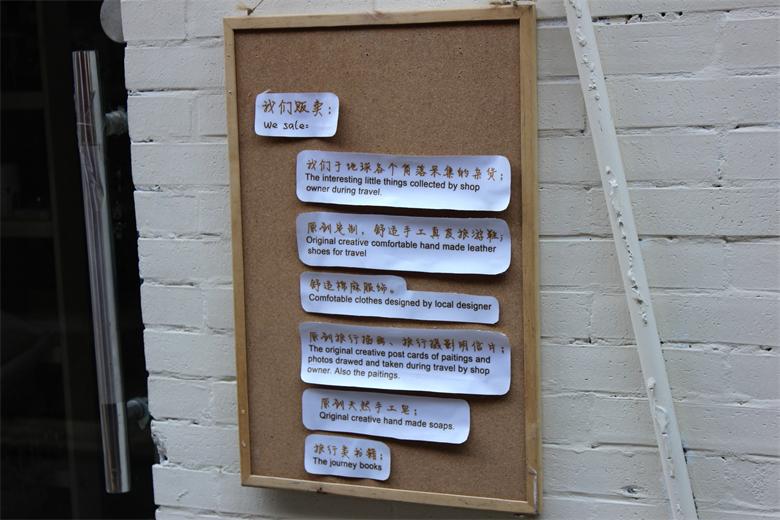 我们贩卖：
We sale:
我们于地球各个角落采集的杂货；
The interesting little things collected by shop
owner during travel.
原创定制，舒适手工真皮旅游鞋；
Original creative comfortable hand made leather
shoes for travel
舒适棉麻服饰。
Comfotable clothes designed by local designer
原创旅行插画、旅行摄影明信片；
The original creative post cards of paitings and
photos drawed and taken during travel by shop
owner. Also the paitings.
原创天然手工皂；
Original creative hand made soaps.
旅行类书籍；
The journey books